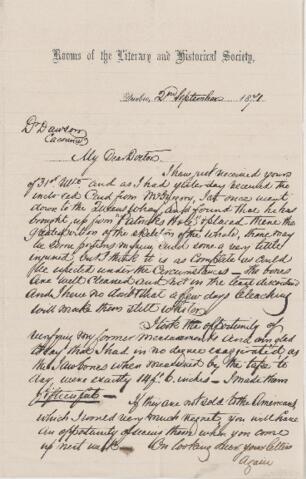 Rooms of the Literary and Historical Society,
Quebec, 2nd September 1871.
Dr Dawson
My Dear Doctor
I have just received yours
of 31st Ulto and as I had yesterday received the
card from I at once went
down to the Queens Wharf and found that he has
brought up from placed. There the
greatest portion of the skeleton of the Whale, there may
be some missing and some a very little
injured, but I think it is as complete as could
be expected under the circumstances — the bones
are well cleaned and not in the least
and I have no doubt that a few days bleaching
will make them still whiter
I took the opportunity of
verifying my former measurements and am glad
to say that I had in no degree exaggerated as
the Jaw bones when measured by the tape to
day were exactly 14 ft 6 inches — I made them
If they are not sold to the Americans
which I would very much regret, you will have
an opportunity of seeing them when you come
up next week — On looking over your letter
again